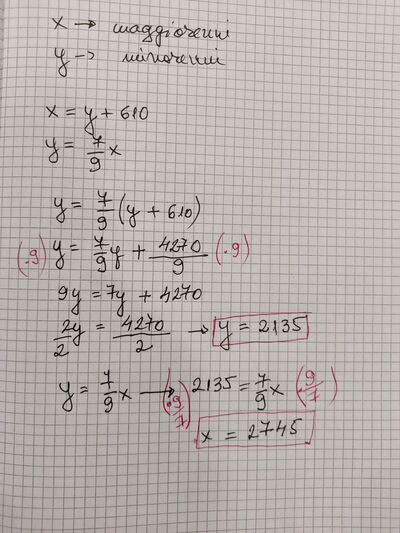 x → maggiorenni
y → minorenni
x = y + 610
y = 7/9 x
y = 7/9 (y + 610)
(·9) y = 7/9 y + 4270/9 (·9)
9y = 7y + 4270
2y/2 = 4270/2 → y = 2135
y = 7/9 x → (·9/7) 2135 = 7/9 x (·9/7)
x = 2745